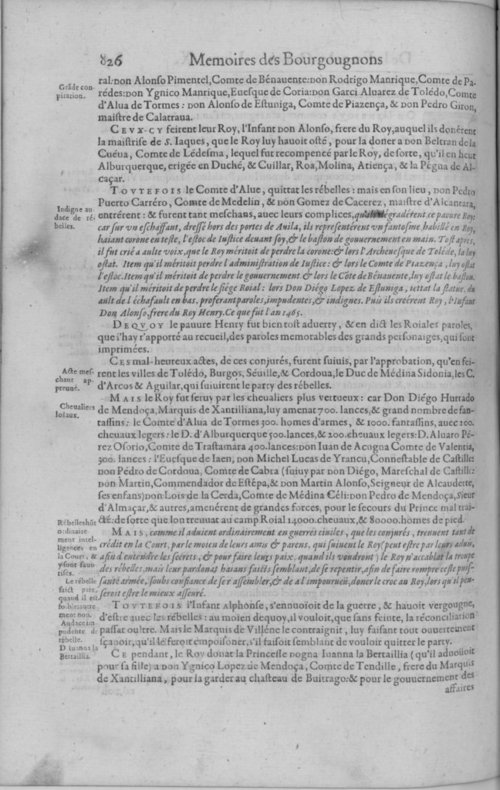 826 Memoires des Bourgougnons
Gráde con-
spiration.
ral: don Alonso Pimentel, Comte de Bénauente: don Rodrigo Manrique, Comte de Pa-
rédes: don Ygnico Manrique, Euesque de Coria: don Garci Aluarez de Tolédo, Comte
d'Alua de Tormes: don Alonso de Estuniga, Comte de Piazença, & don Pedro Giron,
maistre de Calatraua.
CEVX-CY feirent leur Roy, l'Infant don Alonso, frere du Roy, auquel ils donérent
la maistrise de S. Iaques, que le Roy luy hauoit osté, pour la doner a don Beltran de la
Cuéua, Comte de Lédesma, lequel fut recompencé par le Roy, de sorte, qu'il en heut
Alburquerque, erigée en Duché, & Cuillar, Roa, Molina, Atiença, & la Pégna de Al-
caçar.
TOVTEFOIS le Comte d'Alue, quittat les rébelles: mais en son lieu, don Pedro
Puerto Carréro, Comte de Medelin, & don Gomez de Cacerez, maistre d'Alcantara,
Indigne au
dace de ré-
belles.
entrérent: & furent tant meschans, auec leurs complices, dégradérent ce pauure Roy:
car sur vn eschaffaut, dressé hors des portes de Auila, ils representérent vn fantosme, habillé en Roy,
haiant corone en teste, l'estoc de Iustice deuant soy, & le baston de gouuernement en main. Tost apres,
il fut crié a aulte voix, que le Roy méritoit de perdre la corone: & lors l'Archeuesque de Tolédo, la luy
ostat. Item qu'il méritoit perdre l'administration de Iustice: & lors le Comte de Piazença, luy ostat
l'estoc. Item qu'il méritoit de perdre le gouuernement & lors le Côte de Bénauente, luy ostat le baston.
Item qu'il méritoit de perdre le siége Roial: lors Don Diégo Lopez de Estuniga, iettat la statue du
ault de l'échafault en bas, proferant paroles, impudentes, & indignes. Puis ils créérent Roy, l'Infant
Don Alonso, frere du Roy Henry. Ce que fut l'an 1465.
DEQVOY le pauure Henry fut bien tost aduerty, & en dict les Roiales paroles,
que i'hay r'apporté au recueil, des paroles memorables des grands personaiges, qui sont
imprimées.
Acte mes-
chant ap-
prouué.
CES mal-heureux actes, de ces conjurés, furent suiuis, par l'approbation, qu'en fei-
rent les villes de Tolédo, Burgos, Séuille, & Cordoua, le Duc de Médina Sidonia, les C.
d'Arcos & Aguilar, qui suiuirent le party des rébelles.
Cheualiers
loiaux.
MAIS le Roy fut seruy par les cheualiers plus vertueux: car Don Diégo Hurtado
de Mendoça, Marquis de Xantilliana, luy amenat 700. lances, & grand nombre de fan-
tassins: le Comte d'Alua de Tormes 500. homes d'armes, & 1000. fantassins, auec 100.
cheuaux legers: le D. d'Alburquerque 500. lances, & 200. cheuaux legers: D. Aluaro Pé-
rez Osorio, Comte de Trastamara 400. lances: don Iuan de Acogna Comte de Valentia,
300. lances: l'Euesque de Iaen, don Michel Lucas de Yrancu, Connestable de Castille:
don Pédro de Cordoua, Comte de Cabra (suiuy par don Diégo, Mareschal de Castille:
don Martin, Commendador de Estépa, & don Martin Alonso, Seigneur de Alcaudette,
ses enfans) don Lois de la Cerda, Comte de Médina Céli: don Pedro de Mendoça, Sieur
d'Almaçar, & autres, amenérent de grandes forces, pour le secours du Prince mal trai-
cté: de sorte que lon treuuat au camp Roial 14000. cheuaux, & 80000. homes de pied.
Rébelles hót
ordinaire-
ment intel-
ligences en
la Court, &
y sont fauo-
risés.
MAIS, comme il aduient ordinairement en guerres ciuiles, que les conjurés, treuuent tant de
crédit en la Court, par le moien de leurs amis & parens, qui suiuent le Roy, peut estre par leurs aduis,
& afin d'entendre les sécrets, & pour faire leurs paix, quand ils vouldront; le Roy n'accablat la troupe
des rébelles, mais leur pardonat haians faict semblant, de se repentir, afin de faire rompre ceste puis-
Le rébelle
faict paix,
quand il est
foible: autre
ment non.
sante armée, soubs confiance de ser'assembler, & de a l'impourueu, doner le croc au Roy, lors qu'il pen-
seroit estre le mieux asseuré.
Audace im-
pudente de
rébelle.
TOVTEFOIS l'Infant Alphonse, s'ennuoioit de la guerre, & hauoit vergougne,
d'estre auec les rébelles: au moien dequoy, il vouloit, que sans feinte, la réconciliation
passat oultre. Mais le Marquis de Villéne le contraignit, luy faisant tout ouuertement
sçauoir, qu'il le feroit empoisoner, s'il faisoit semblant de vouloir quitter le party.
D. Iuanna la
Bertaillia.
CE pendant, le Roy donat la Princesse dogna Iuanna la Bertaillia (qu'il aduouoit
pour sa fille) a don Ygnico Lopez de Mendoça, Comte de Tendille, frere du Marquis
de Xantilliana, pour la garder au chasteau de Buitrago: & pour le gouuernement des
affaires